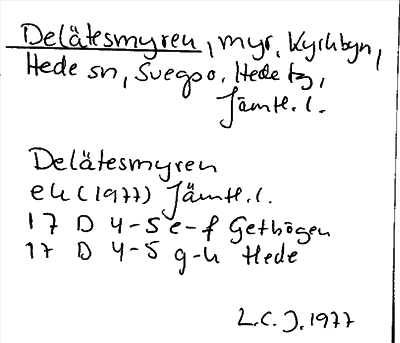 Delätesmyren, myr, Kyrkbyn,
Hede sn, Svegs o. Hede tg,
Jämtl. l.
Delätesmyren
ek (1977) Jämtl. l.
17 D 4-5 e-f Gethögen
17 D 4-5 g-h Hede
L.C.J. 1977